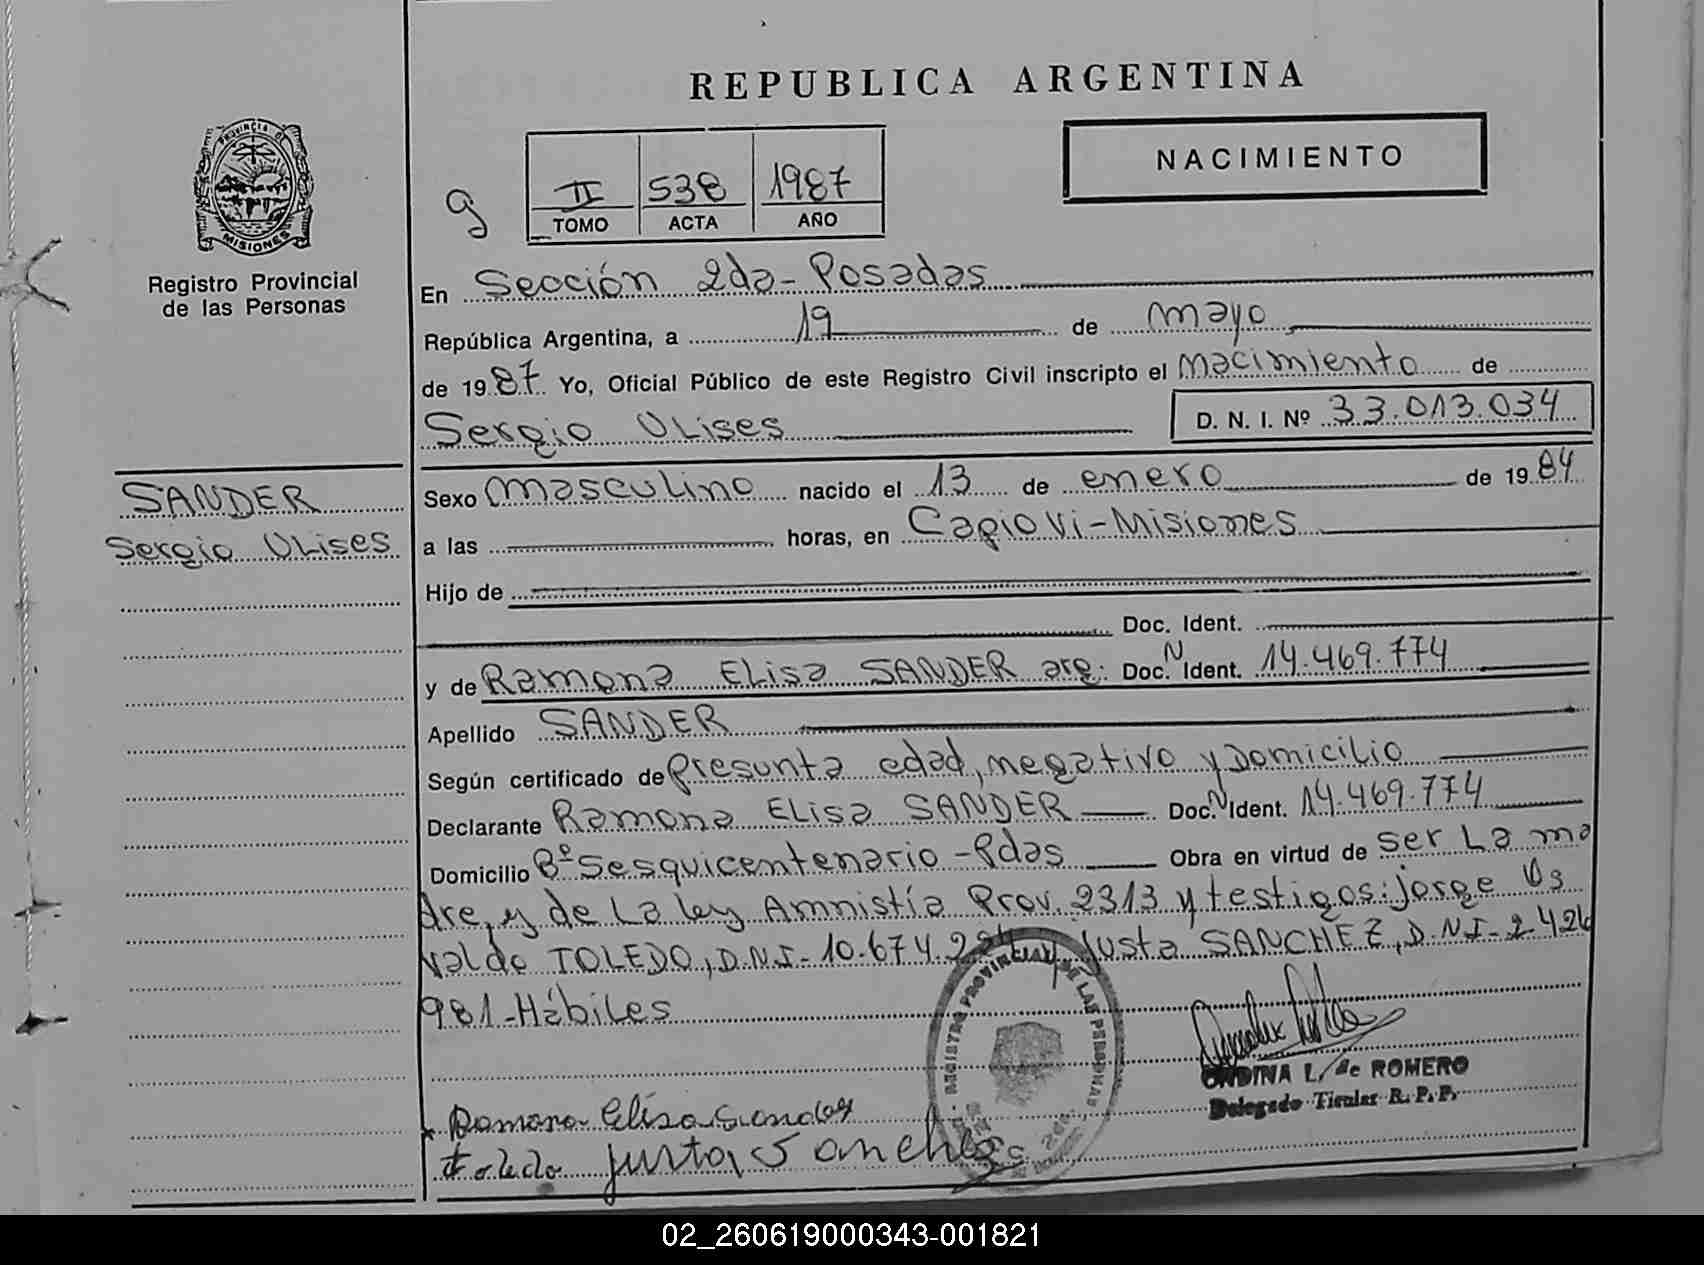 REPUBLICA ARGENTINA
NACIMIENTO
PROVINCIA DE
MISIONES
Registro Provincial
de las Personas
9
II 538 1987
TOMO ACTA AÑO
En Sección 2da-Posadas
República Argentina, a 19 de mayo
de 1987 Yo, Oficial Público de este Registro Civil inscripto el nacimiento de
Sergio Ulises D. N. I. Nº 33.013.034
SANDER
Sergio Ulises
Sexo masculino nacido el 13 de enero de 1984
a las horas, en Capiovi-Misiones
Hijo de
Doc. Ident.
y de Ramona Elisa SANDER arg. Doc. N Ident. 14.469.774
Apellido SANDER
Según certificado de Presunta edad, negativo y Domicilio
Declarante Ramona Elisa SANDER Doc. N Ident. 14.469.774
Domicilio Bº Sesquicentenario-Pdas Obra en virtud de ser La ma
dre, y de La ley Amnistía Prov. 2313 y testigos: jorge Os
valdo TOLEDO, D.N.I- 10.674. y Justa SANCHEZ, D.N.I- 2 426
981-Hábiles
REGISTRO PROVINCIAL DE LAS PERSONAS
ONDINA L. de ROMERO
Delegado Titular R. P. P.
Ramona Elisa Sander
Toledo Justa Sanchez
02_260619000343-001821